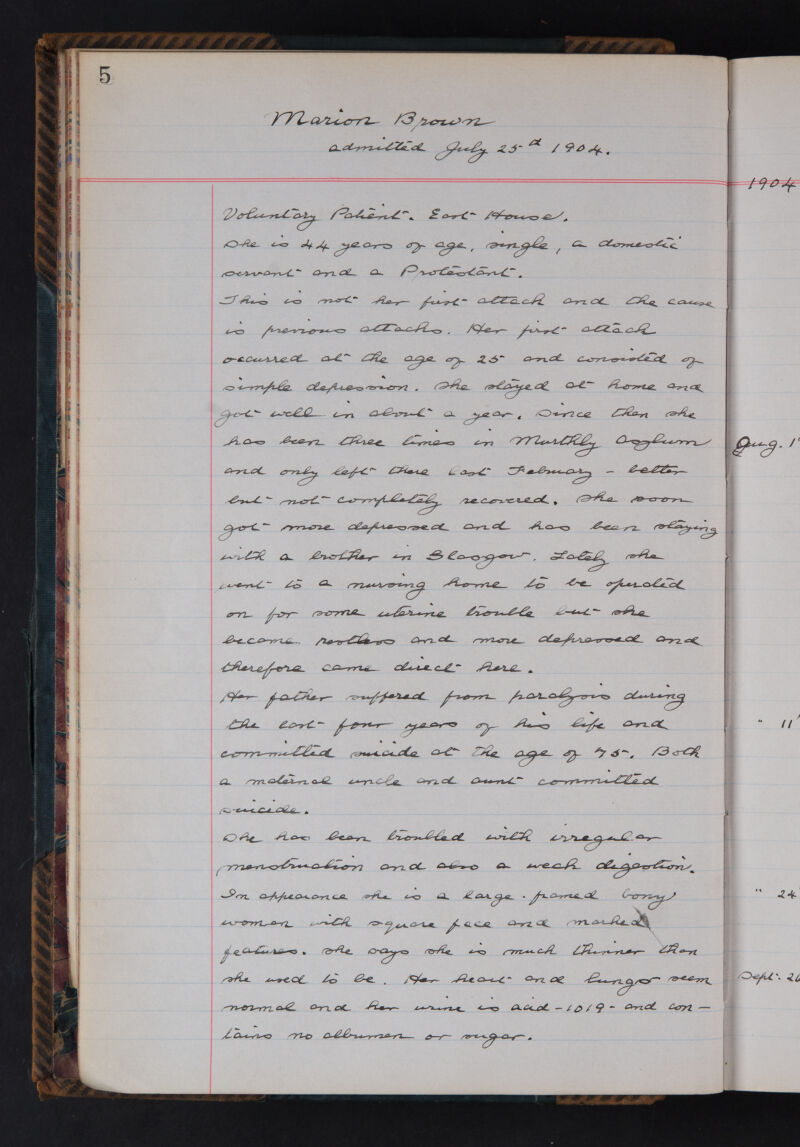 5
Marion Brown
admitted July 25th 1904.
Voluntary Patient. East House.
She is 44 years of age, single, a domestic
servant and a Protestant.
This is not her first attack and the cause
is previous attacks. Her first attack
occurred at the age of 25 and consisted of
simple depression. She stayed at home and
got well in about a year. Since then she
has been three times in Murthly Asylum
and only left there last February – better
but not completely recovered. She soon
got more depressed and has been staying
with a brother in Glasgow. Lately she
went to a nursing home to be operated
on for some uterine trouble but she
became restless and more depressed and
therefore came direct here.
Her father suffered from paralysis during
the last four years of his life and
committed suicide at the age of 75. Both
a maternal uncle and aunt committed
suicide.
She has been troubled with irregular
menstruation and also a weak digestion.
In appearance she is a large-framed bony
woman with square face and marked
features. She says she is much thinner than
she used to be. Her heart and lungs seem
normal and her urine is acid – 1019 – and con-
tains no albumen or sugar.
1904
Aug. 1
" 11
" 24
Sept. 26